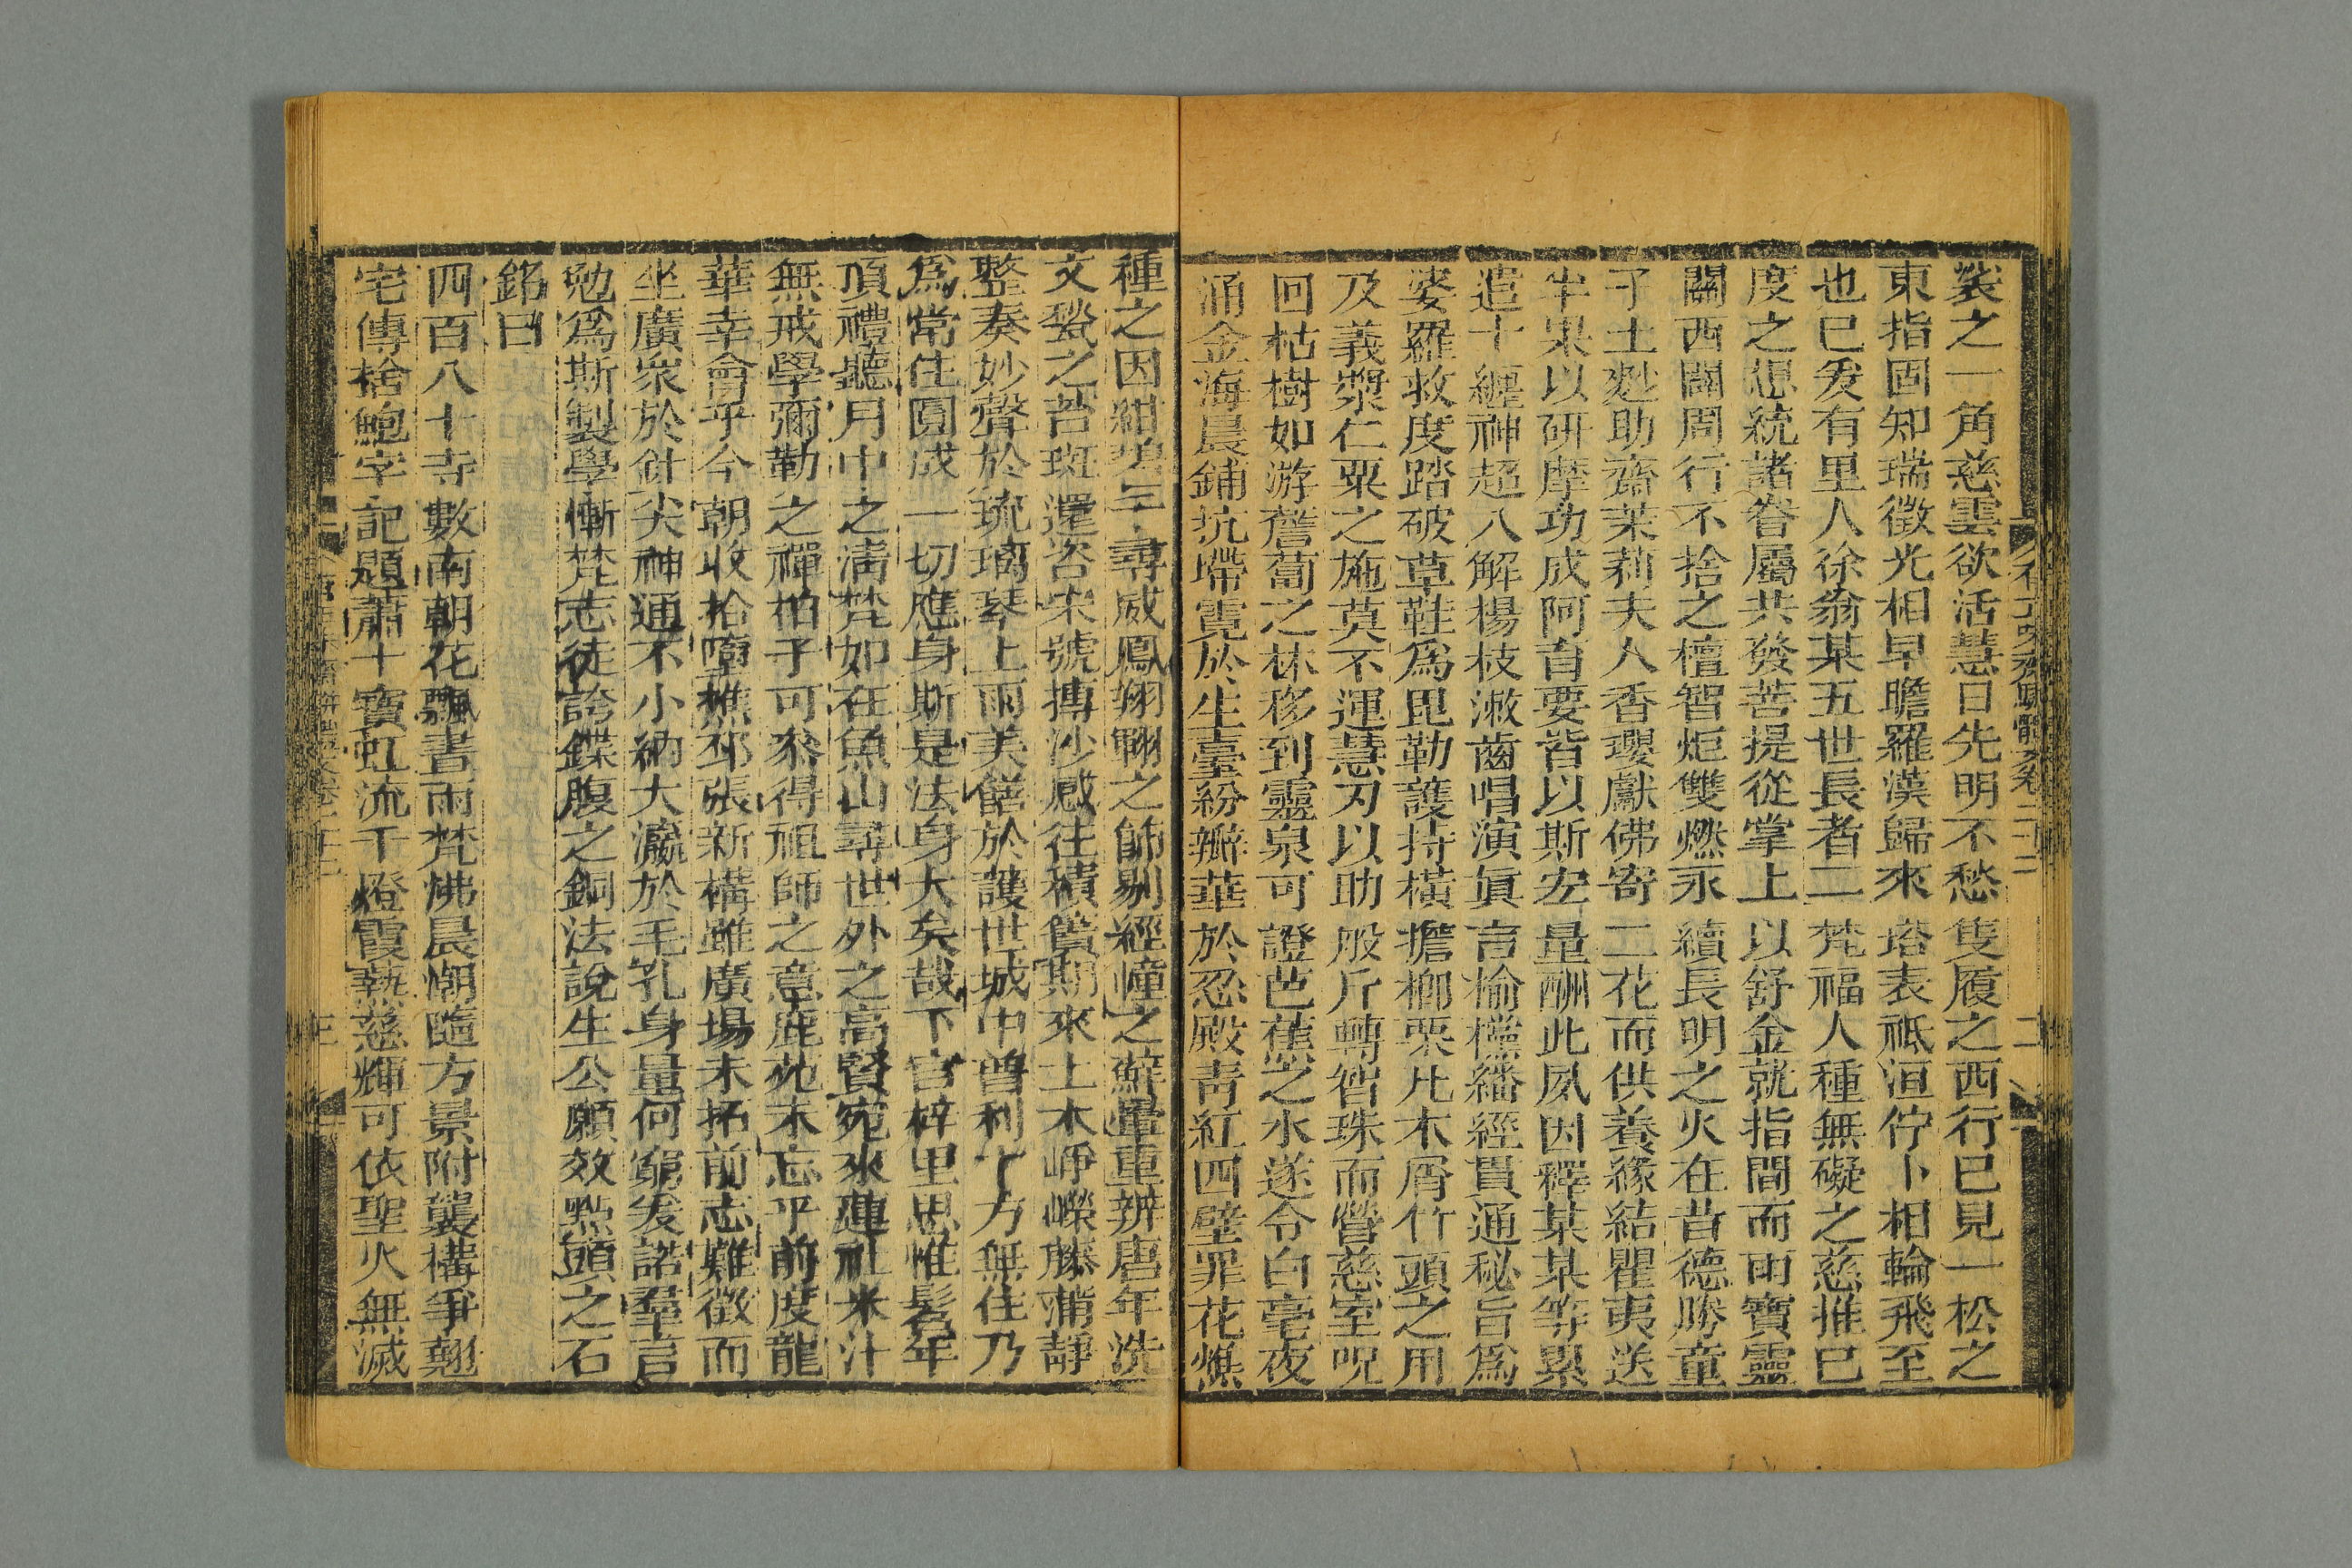 裟之一角慈雲欲活慧日先明不愁隻履之西行已見一松之
東指固知瑞徵光相早瞻羅漢歸來塔表祗洹佇卜相輪飛至
也已爰有里人徐翁某五世長者二梵福人種無礙之慈推已
度之想統諸眷屬共發菩提從掌上以舒金就指間而雨寶靈
關西闢周行不捨之檀智炬雙燃永續長明之火在昔德勝童
子土麨助齋茉莉夫人香瓔獻佛寄二花而供養緣結瞿夷送
半果以研摩功成阿育要皆以斯宏量酬此夙因釋某某等累
遣十纏神超八解楊枝漱齒唱演眞言楡欓繙經貫通秘旨爲
婆羅救度踏破草鞋爲毘勒護持橫擔榔栗凡木屑竹頭之用
及義漿仁粟之施莫不運慧刃以助般斤轉智珠而營慈室呪
回枯樹如游薝蔔之林移到靈泉可證芭蕉之水遂令白毫夜
涌金海晨鋪坑墆霓於生臺紛瓣華於忍殿靑紅四壁罪花燋
種之因紺碧三尋威鳳翔翺之飾剔經幢之蘚暈重辨唐年洗
文甃之苔斑還咨宋號摶沙感往積簣期來土木崢嶸藤蒲靜
整奏妙聲於琉璃琴上雨美饍於護世城中曾利十方無住乃
爲常住圓成一切應身斯是法身大矣哉下官梓里思惟髫年
頂禮聽月中之淸梵如在魚山尋世外之高賢宛來蓮社米汁
無戒學彌勒之禪柏子可參得祖師之意鹿苑未忘乎前度龍
華幸會乎今朝收拾墮樵邳張新構雖廣場未拓前志難徵而
坐廣衆於針尖神通不小納大瀛於毛孔身量何窮爰諾羣言
勉爲斯製學慚梵志徒誇鍱腹之銅法說生公願效點頭之石
銘曰
四百八十寺數南朝花飄晝雨梵沸晨潮隨方景附襲構爭翹
宅傳捨鮑字記題蕭十寶虹流千燈霞爇慈輝可依聖火無滅